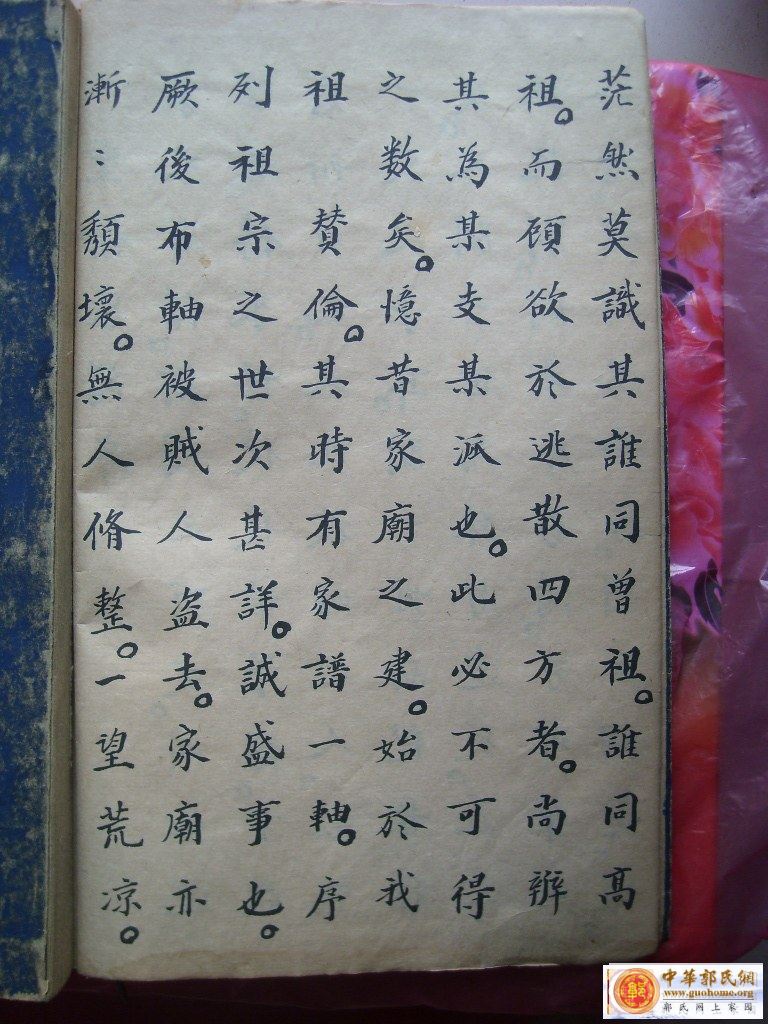 茫然莫識其誰同曾祖。誰同高
祖。而顾欲於逃散四方者。尚辨
其為某支某派也。此必不可得
之数矣。憶昔家廟之建。始於我
祖 賛倫。其時有家譜一軸。序
列祖宗之世次甚詳。誠盛事也。
厥後布軸被賊人盗去。家廟亦
漸:頽壞。無人脩整。一望荒凉。
中華郭氏網
www.guohome.org
郭氏网上家园